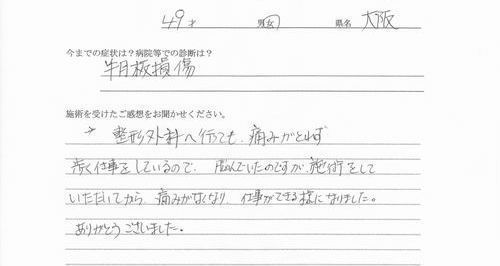 49才 男女 県名 大阪
今までの症状は？病院等での診断は？
半月板損傷
施術を受けたご感想をお聞かせください。
→ 整形外科へ行ても、痛みがとれず
歩く仕事をしているので、悩んでいたのですが、施術をして
いただいてから、痛みがなくなり、仕事ができる様になりました。
ありがとうございました。